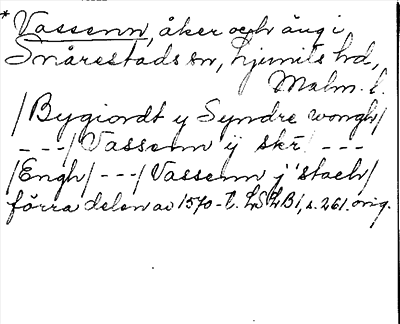 * Vassenn, åker och äng i
Snårestads sn, Ljunits hd,
Malm. l.
/Bygiordt y Syndre wongh/
- - -/Vassenn ÿ skr./ - - -
/Engh/ - - -/Vassenn j stach/
förra delen av 1570-t. LSLB1, s. 261. orig.